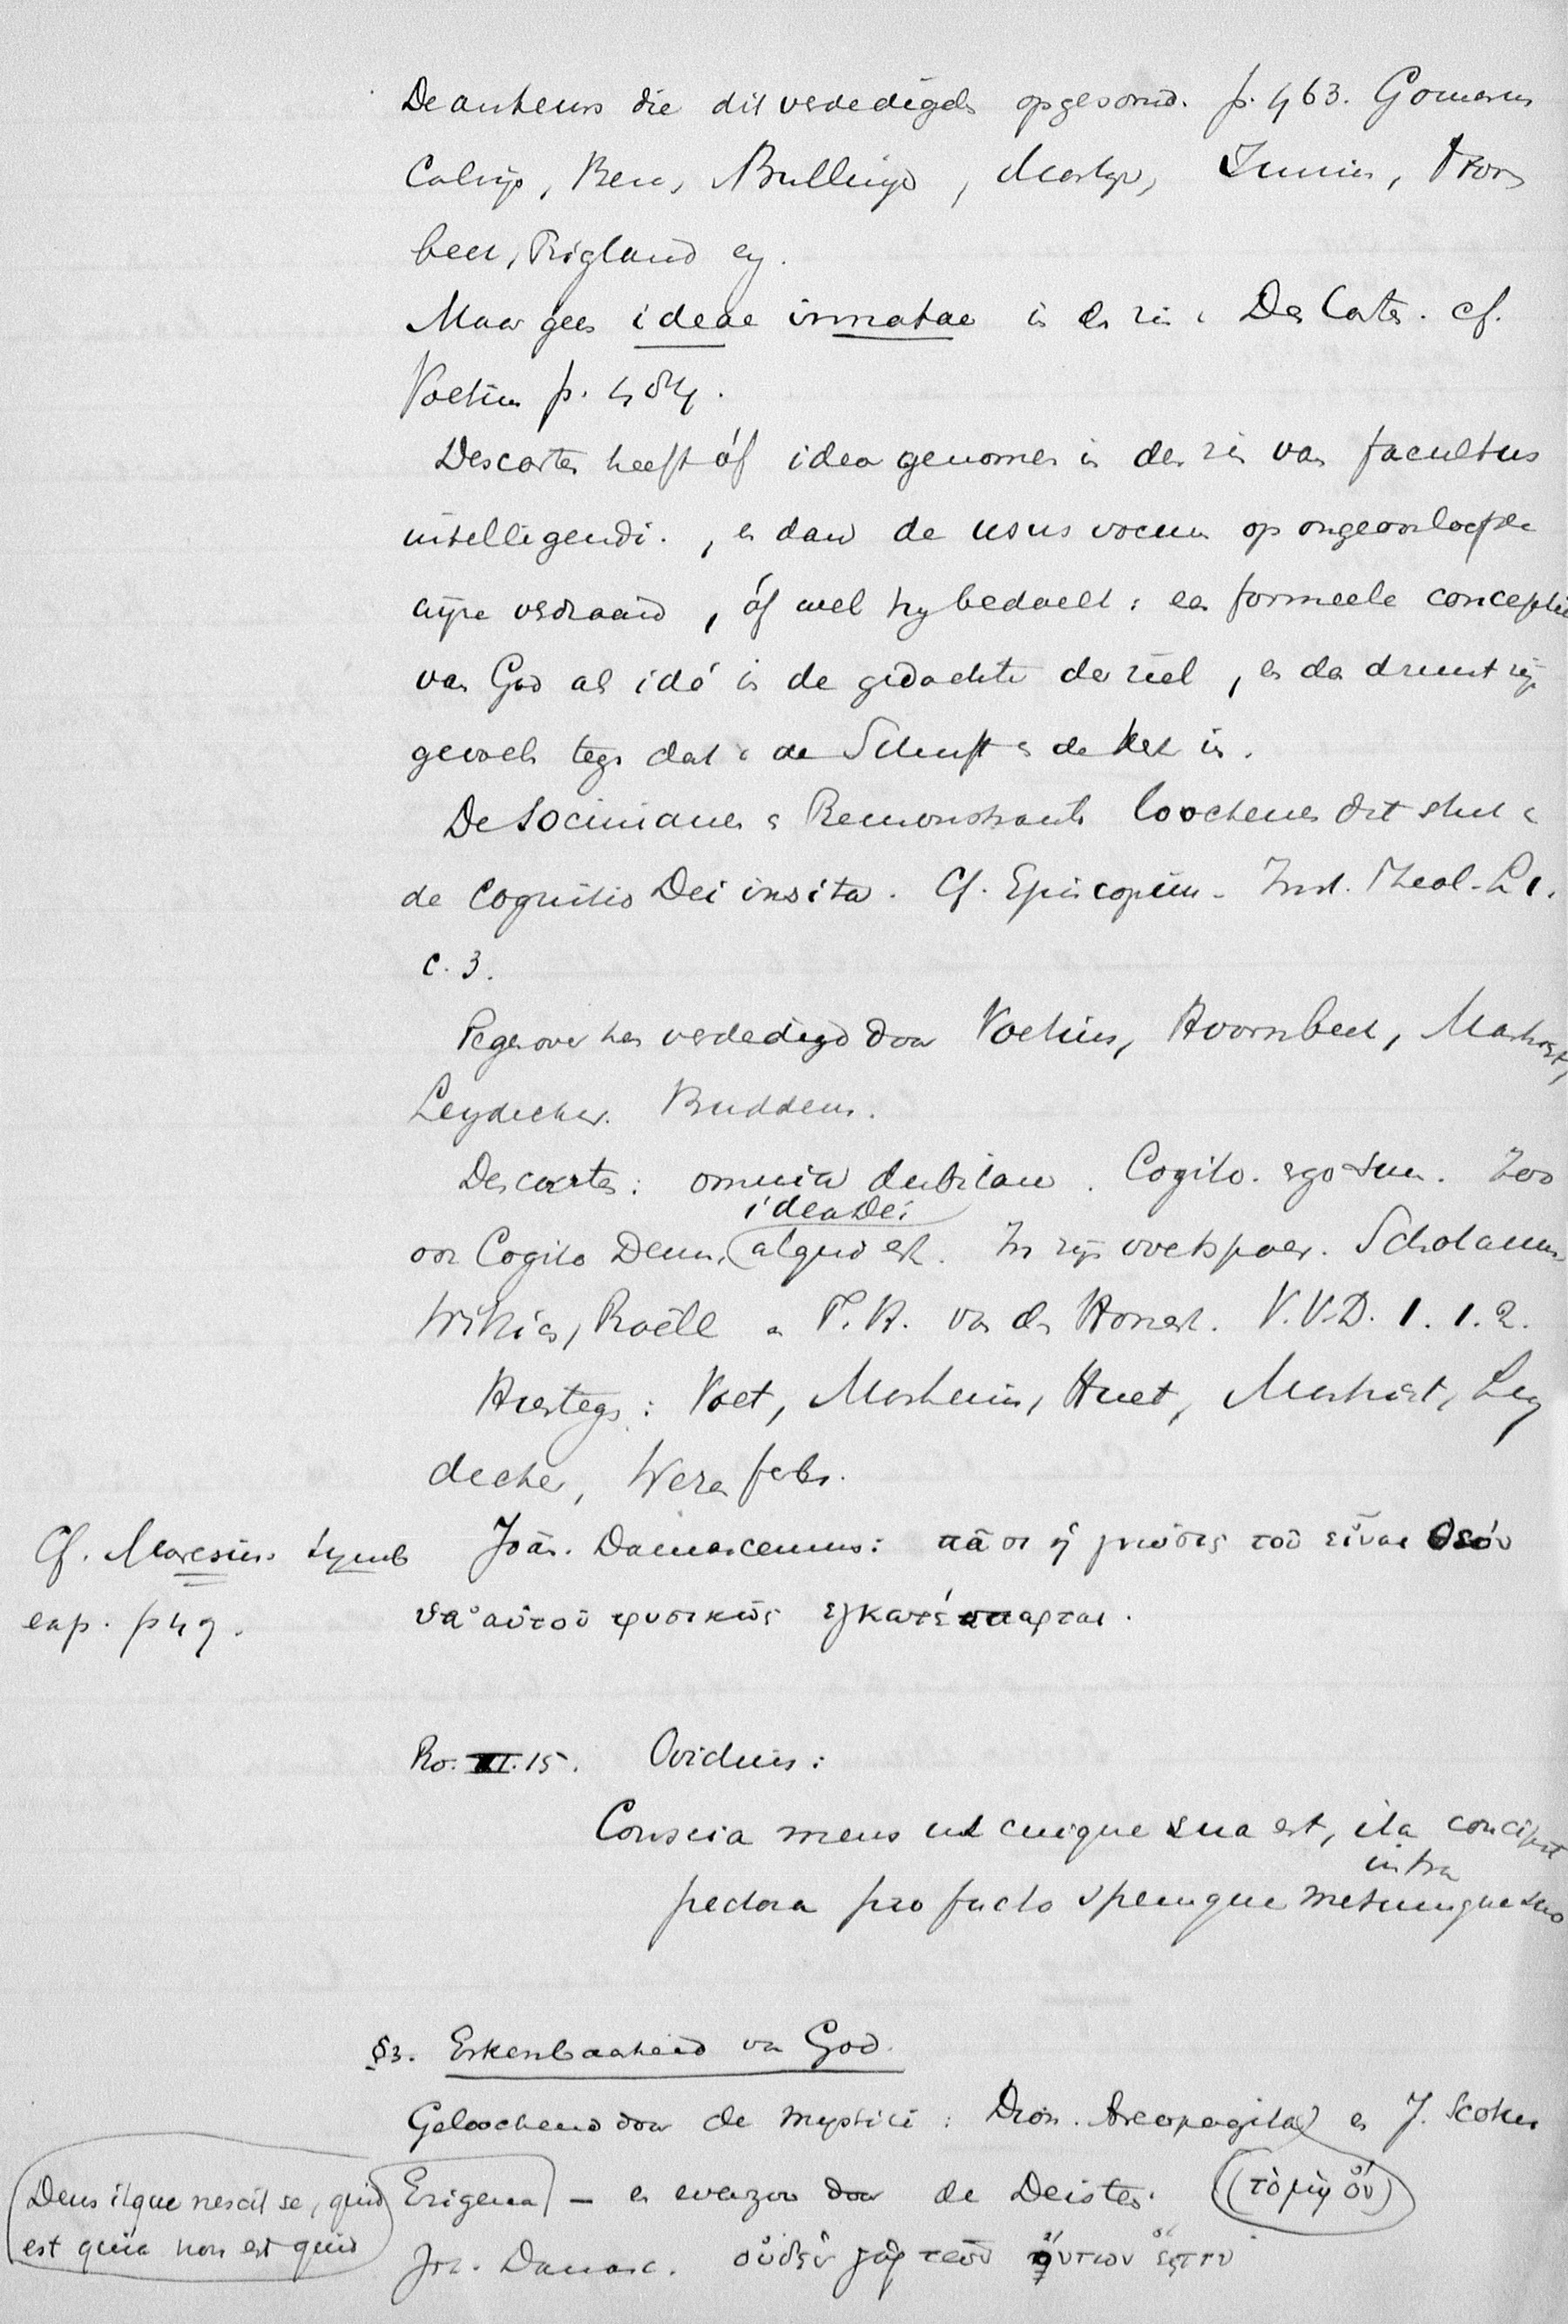 De auteurs die dit verdedigds opgesomd. p. 463. Gomarus
Calvijn, Beza, Bullinger, Martyr, Junius, Hoorn
beek, Trigland en.
Maar geen ideae innatae in den zin v. Des Cartes. cf.
Voetius p. 484.
Descartes heeft óf idea genomen in den zin van facultus
intelligendi., en dan de usus vocum op ongeoorloofde
wijze verdraaid, óf wel hij bedoelt: een formeele conceptie
van God als idé in de gedachte der ziel, en dan druist zijn
gevoelen tegen dat v de Schrift & de kerk in.
De Socinianen & Remonstranten loochenen dit stuk v
de Cognitio Dei insita. Cf. Episcopius. Inst. Theol. L 1.
c. 3.
Tegenover hen verdedigd door Voetius, Hoornbeek, Mastricht,
Leydecker. Buddeus.
Descartes: omnia dubitare. Cogito. ergo sum. Zoo
idea Dei
ook Cogito Deum, aliquid est. In zijn voetspoor. Scholanus
Wittich, Roëll en T. H. van den Honert. V.V.D. 1. 1. 2.
Hiertegen: Voet, Mosheim, Huet, Mastricht, Ley
decker, Werenfels.
Cf. Maresius. Symb
exp. p 49.
Joän. Damascenus: πᾶσι ἡ γνῶσις τοῦ εἶναι Θεόν
ὑπ' αὐτοῦ φυσικῶς ἐγκατέσπαρται.
Ro. II. 15. Ovidius:
Conscia mens ut cuique sua est, ita concipit
intra
pectora pro facto spemque metumque suo
§3. Erkenbaarheid van God.
Geloochend door de mystici: Dion. Areopagita en J. Scotus
Erigena – en evenzoo door de Deisten. (τὸ μὴ ὄν)
Deus itque nescit se, quid
est quia non est quid
Joh. Damasc. οὐδὲν γὰρ τῶν ὄντων ἐστίν